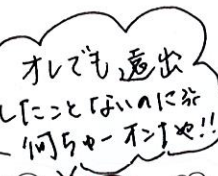 オレでも遠出
したことないのに
何ちゅーオンナや!!